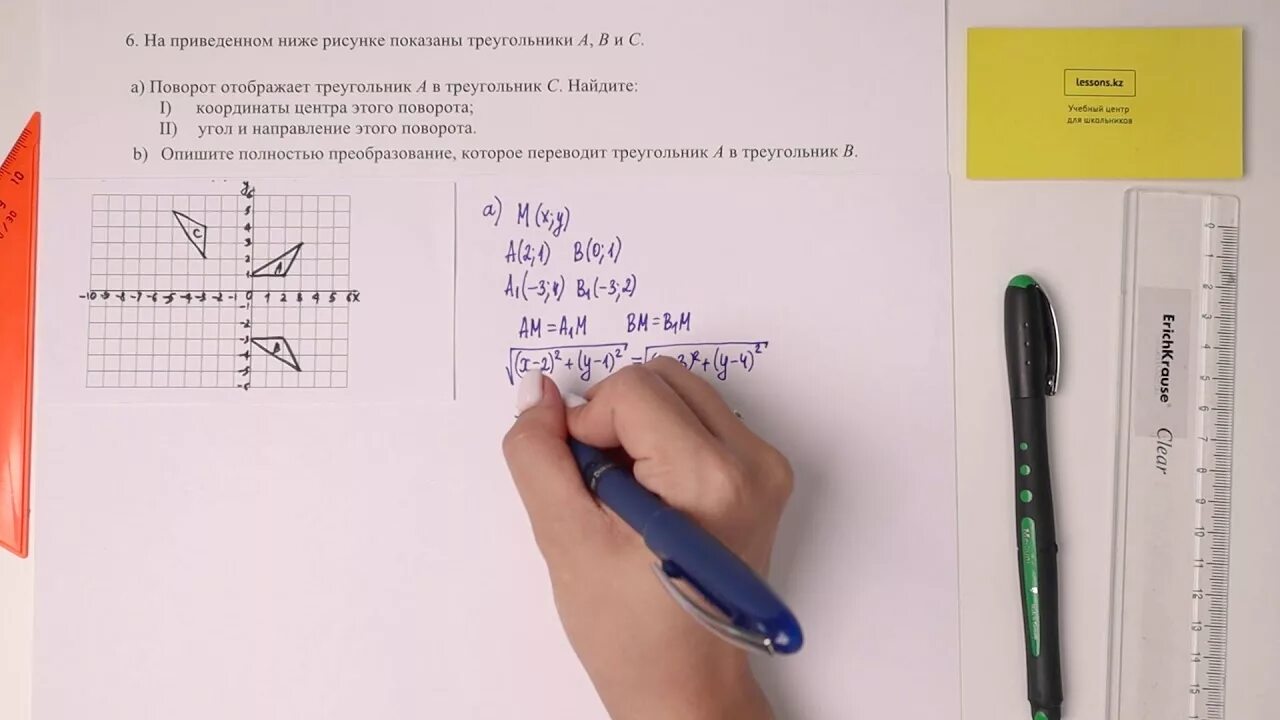 6. На приведенном ниже рисунке показаны треугольники A, B и C.
a) Поворот отображает треугольник A в треугольник C. Найдите:
I) координаты центра этого поворота;
II) угол и направление этого поворота.
b) Опишите полностью преобразование, которое переводит треугольник A в треугольник B.
lessons.kz
Учебный центр
для школьников
y
6
5
4
3
2
1
C
A
-10 -9 -8 -7 -6 -5 -4 -3 -2 -1 0 1 2 3 4 5 6 x
-1
-2
-3
-4
-5
-6
B
a) M(x;y)
A(2;1) B(0;1)
A₁(-3;4) B₁(-3;2)
AM = A₁M BM = B₁M
√(x-2)² + (y-1)² = √ 3)² + (y-4)²
ErichKrause
Clear
10
0 1 2 3 4 5 6 7 8 9 10 11 12 13 14 15